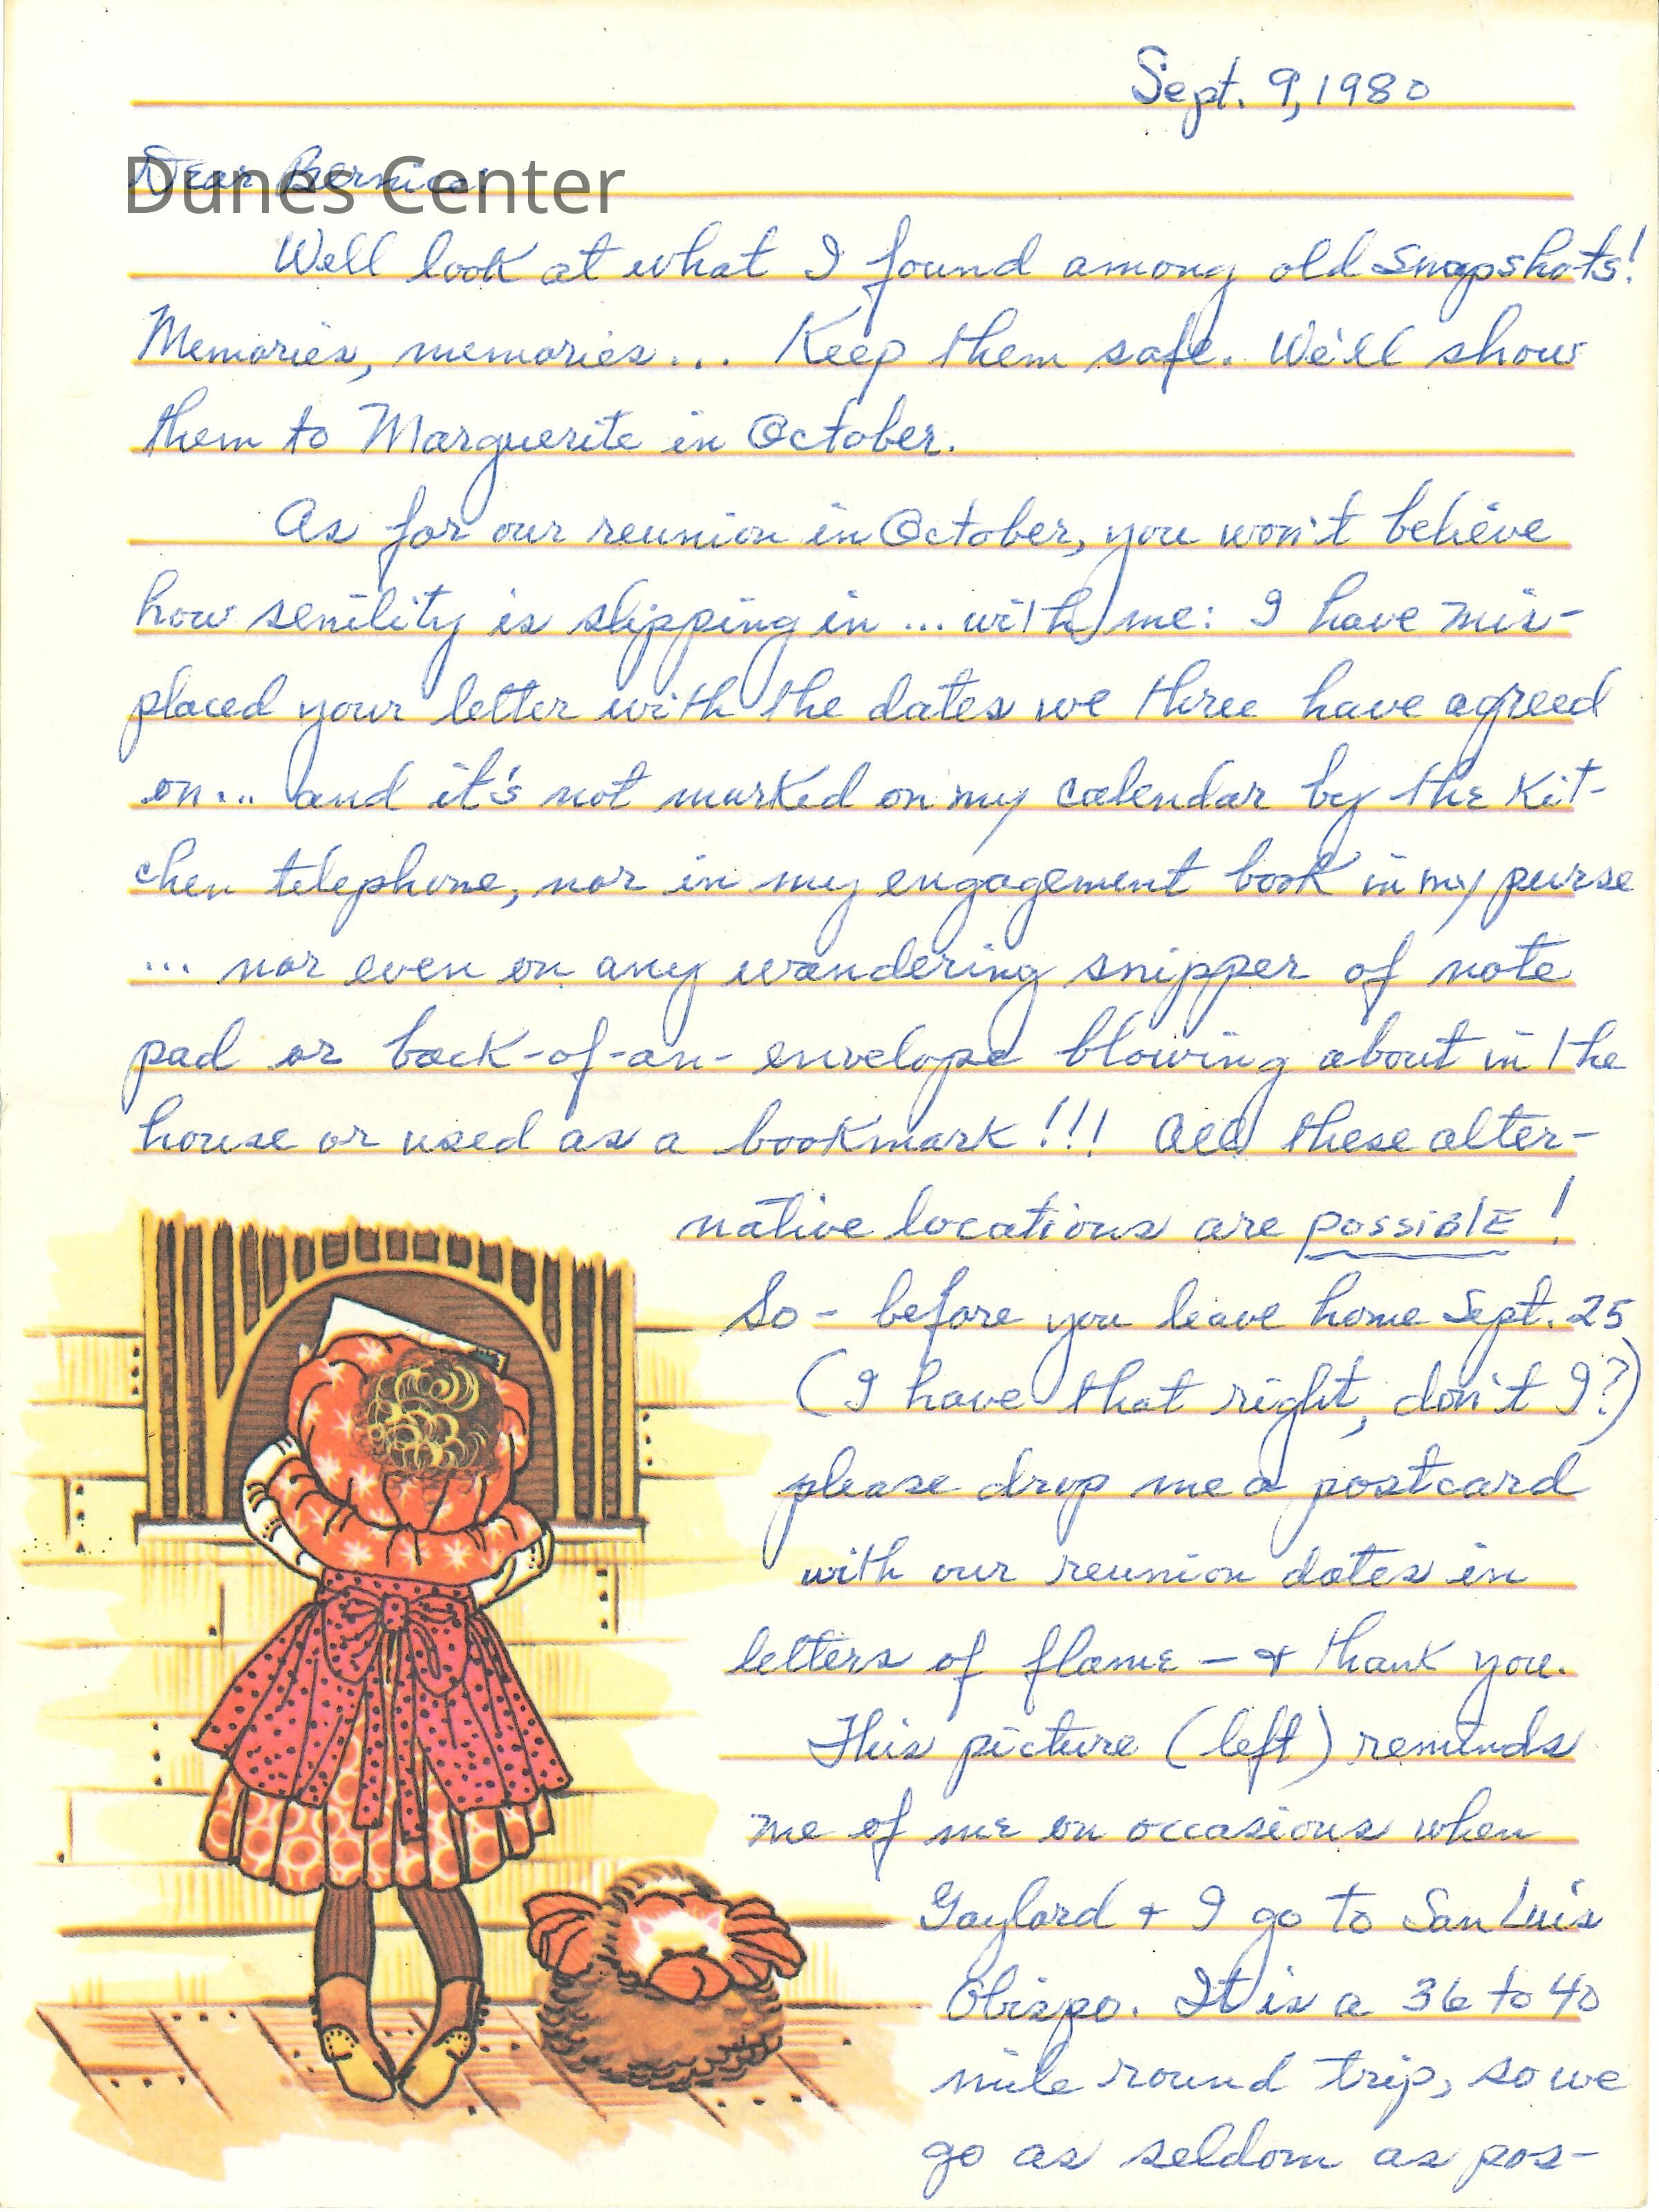 Sept. 9, 1980
Dear Bernice:
Dunes Center
Well look at what I found among old snapshots!
Memories, memories... Keep them safe. We'll show
them to Marguerite in October.
As for our reunion in October, you won't believe
how senility is slipping in ... with me: I have mis-
placed your letter with the dates we three have agreed
on... and it's not marked on my calendar by the kit-
chen telephone, nor in my engagement book in my purse
... nor even on any wandering snipper of note
pad or back-of-an-envelope blowing about in the
house or used as a bookmark!!! All these alter-
native locations are possible!
So - before you leave home Sept. 25
(I have that right, don't I?)
please drop me a postcard
with our reunion dates in
letters of flame - & thank you.
This picture (left) reminds
me of me on occasions when
Gaylord & I go to San Luis
Obispo. It is a 36 to 40
mile round trip, so we
go as seldom as pos-